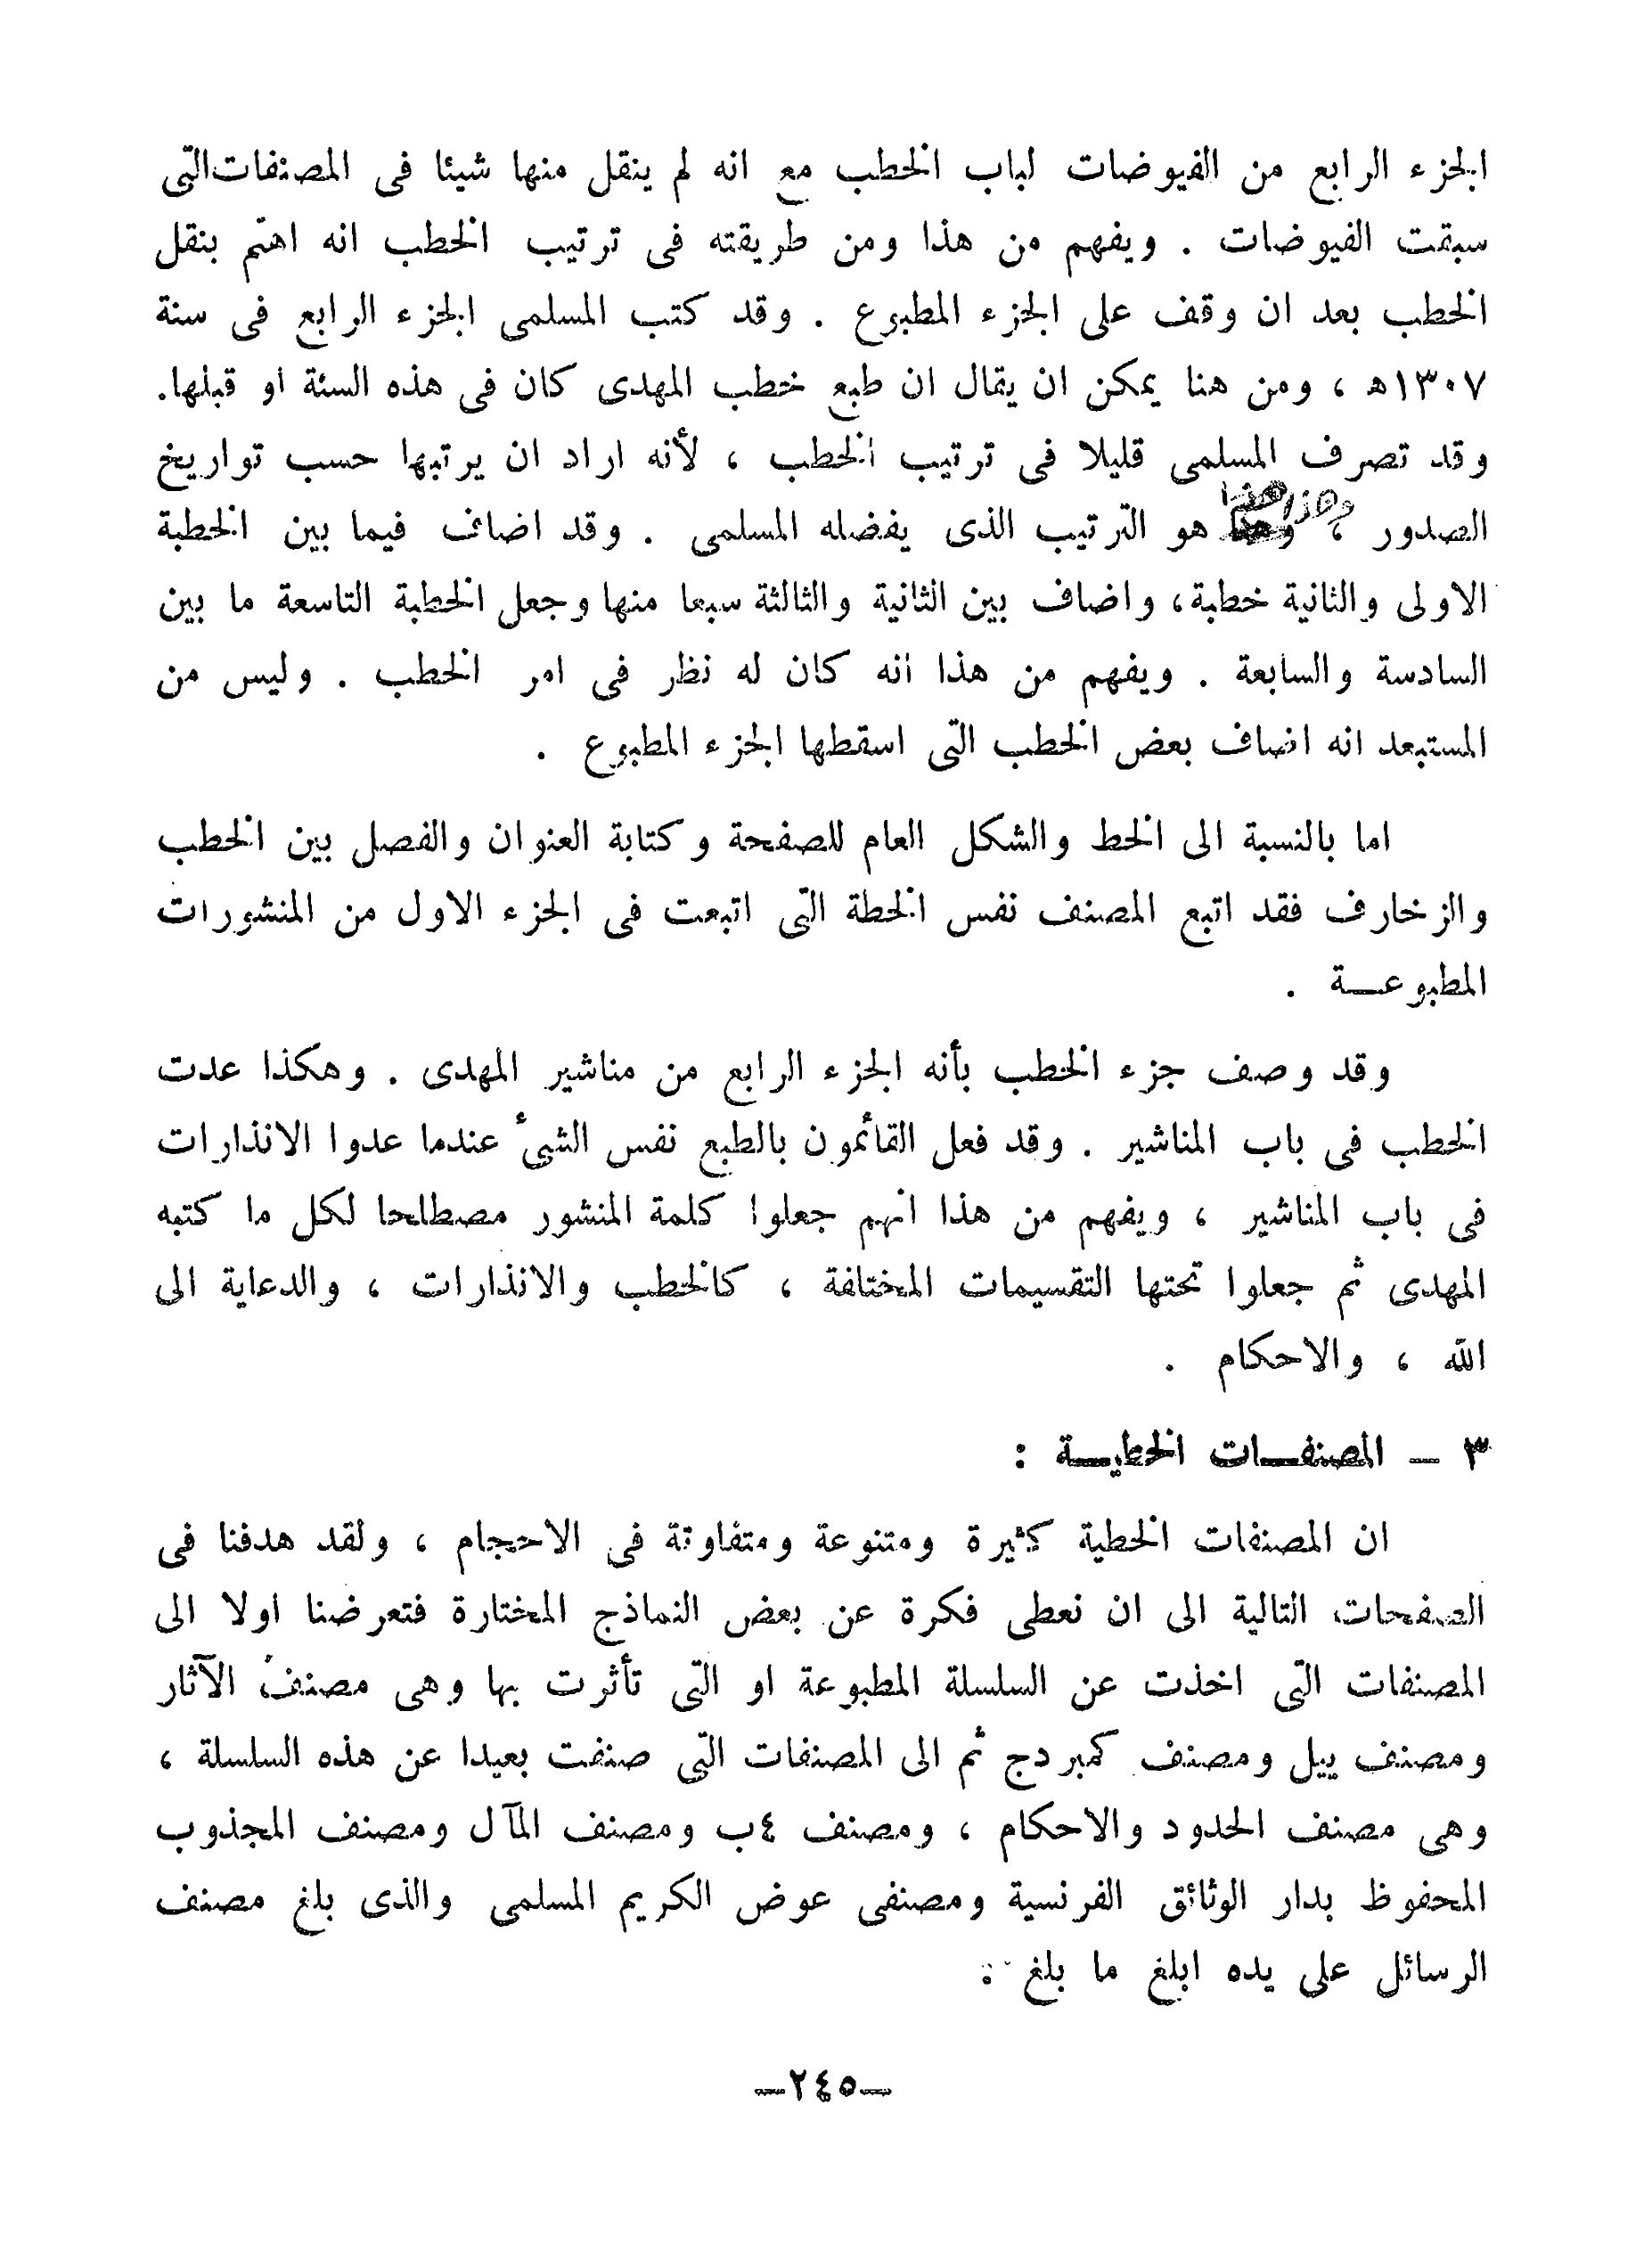 الجزء الرابع من الفيوضات لباب الخطب مع انه لم ينقل منها شيئا فى المصنفات التى
سبقت الفيوضات . ويفهم من هذا ومن طريقته فى ترتيب الخطب انه اهتم بنقل
الخطب بعد ان وقف على الجزء المطبوع . وقد كتب المسلمى الجزء الرابع فى سنة
١٣٠٧هـ ، ومن هنا يمكن ان يقال ان طبع خطب المهدى كان فى هذه السنة او قبلها.
وقد تصرف المسلمى قليلا فى ترتيب الخطب ، لأنه اراد ان يرتبها حسب تواريخ
الصدور ، وهذا هو الترتيب الذى يفضله المسلمى . وقد اضاف فيما بين الخطبة
الاولى والثانية خطبة، واضاف بين الثانية والثالثة سبعا منها وجعل الخطبة التاسعة ما بين
السادسة والسابعة . ويفهم من هذا انه كان له نظر فى امر الخطب . وليس من
المستبعد انه اضاف بعض الخطب التى اسقطها الجزء المطبوع .
اما بالنسبة الى الخط والشكل العام للصفحة وكتابة العنوان والفصل بين الخطب
والزخارف فقد اتبع المصنف نفس الخطة التى اتبعت فى الجزء الاول من المنشورات
المطبوعـــة .
وقد وصف جزء الخطب بأنه الجزء الرابع من مناشير المهدى . وهكذا عدت
الخطب فى باب المناشير . وقد فعل القائمون بالطبع نفس الشئ عندما عدوا الانذارات
فى باب المناشير ، ويفهم من هذا انهم جعلوا كلمة المنشور مصطلحا لكل ما كتبه
المهدى ثم جعلوا تحتها التقسيمات المختلفة ، كالخطب والانذارات ، والدعاية الى
الله ، والاحكام .
٣ – المصنفــات الخطيــة :
ان المصنفات الخطية كثيرة ومتنوعة ومتفاوتة فى الاحجام ، ولقد هدفنا فى
الصفحات التالية الى ان نعطى فكرة عن بعض النماذج المختارة فتعرضنا اولا الى
المصنفات التى اخذت عن السلسلة المطبوعة او التى تأثرت بها وهى مصنف الآثار
ومصنف ييل ومصنف كمبردج ثم الى المصنفات التى صنفت بعيدا عن هذه السلسلة ،
وهى مصنف الحدود والاحكام ، ومصنف ٤ب ومصنف المآل ومصنف المجذوب
المحفوظ بدار الوثائق الفرنسية ومصنفى عوض الكريم المسلمى والذى بلغ مصنف
الرسائل على يده ابلغ ما بلغ :
–٢٤٥–